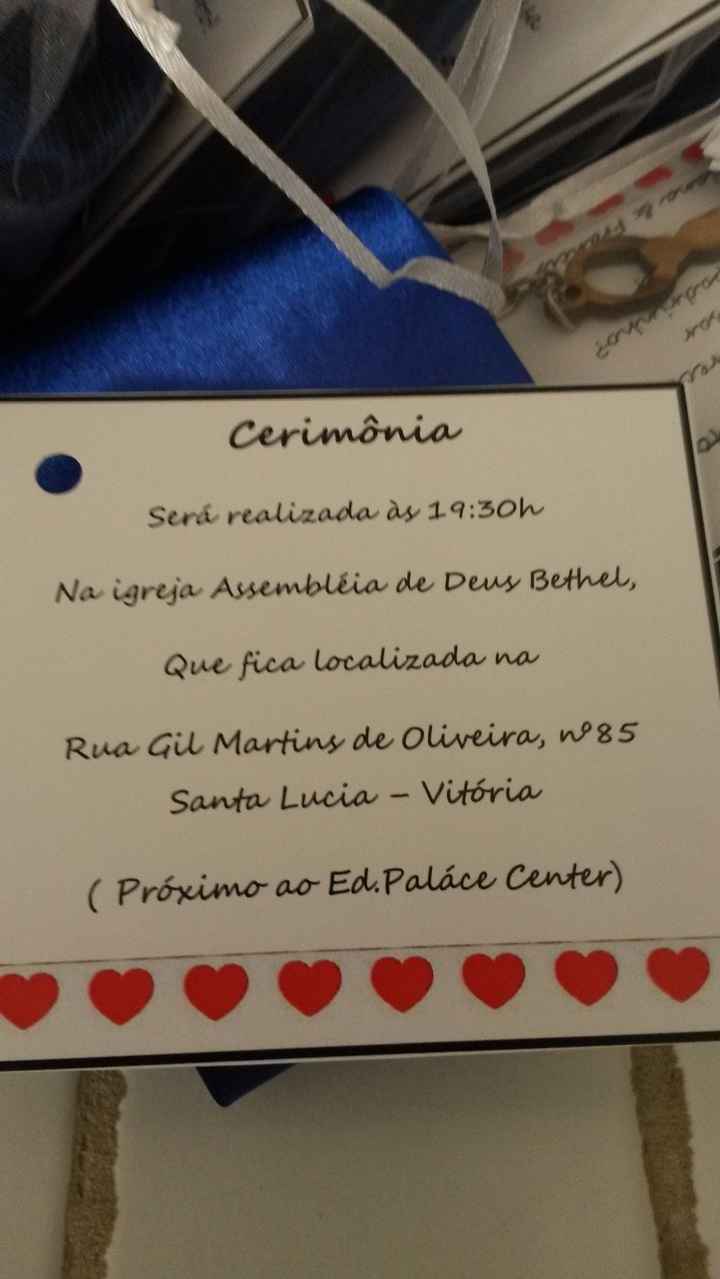 Cerimônia
Será realizada às 19:30h
Na igreja Assembléia de Deus Bethel,
Que fica localizada na
Rua Gil Martins de Oliveira, nº85
Santa Lucia – Vitória
( Próximo ao Ed.Paláce Center)